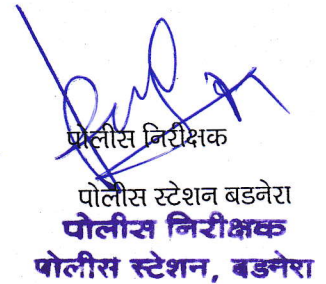 पोलीस निरीक्षक
पोलीस स्टेशन बडनेरा
पोलीस निरीक्षक
पोलीस स्टेशन, बडनेरा